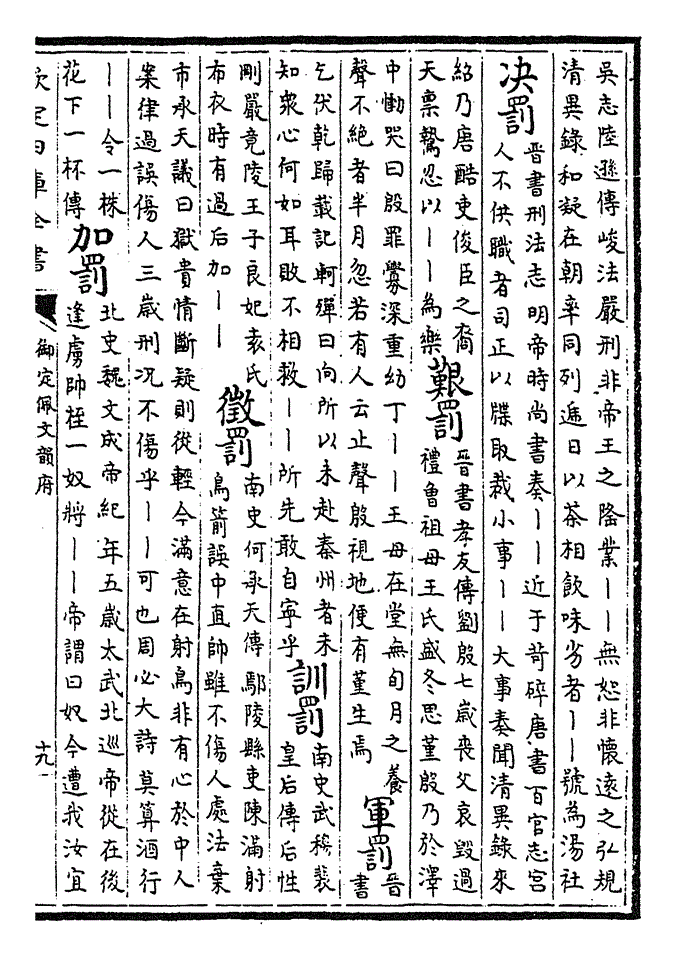 吳志陸遜傳峻法嚴刑非帝王之隆業丨丨無恕非懷遠之弘規
清異錄和凝在朝率同列遞日以茶相飲味劣者丨丨號為湯社
决罰
晉書刑法志明帝時尚書奏丨丨近于苛碎唐書百官志宮
人不供職者司正以牒取裁小事丨丨大事奏聞清異錄來
紹乃唐酷吏俊臣之裔
天禀鷙忍以丨丨為樂
艱罰
晉書孝友傳劉殷七歲喪父哀毀過
禮曾祖母王氏盛冬思堇殷乃於澤
中慟哭曰殷罪釁深重幼丁丨丨王母在堂無旬月之養
聲不絕者半月忽若有人云止聲殷視地便有堇生焉
軍罰
晉
書
乞伏乾歸載記軻殫曰向所以未赴秦州者未
知衆心何如耳敗不相救丨丨所先敢自寧乎
訓罰
南史武穆裴
皇后傳后性
剛嚴竟陵王子良妃袁氏
布衣時有過后加丨丨
徵罰
南史何承天傳鄢陵縣吏陳滿射
鳥箭誤中直帥雖不傷人處法棄
市承天議曰獄貴情斷疑則從輕今滿意在射鳥非有心於中人
案律過誤傷人三歲刑况不傷乎丨丨可也周必大詩莫算酒行
丨丨令一株
花下一杯傳
加罰
北史魏文成帝紀年五歲太武北巡帝從在後
逢虜帥桎一奴將丨丨帝謂曰奴今遭我汝宜
欽定四庫全書
御定佩文韻府
十九